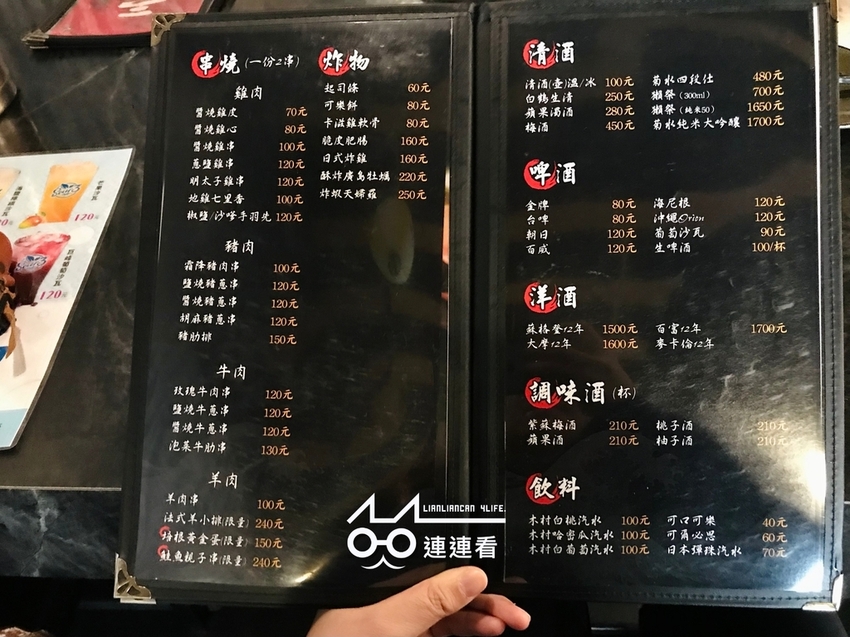 串燒(一份2串)
雞肉
醬燒雞皮 70元
醬燒雞心 80元
醬燒雞串 100元
蔥鹽雞串 120元
明太子雞串 120元
地雞七里香 100元
椒鹽/沙嗲手羽先 120元
豬肉
霜降豬肉串 100元
鹽燒豬蔥串 120元
醬燒豬蔥串 120元
胡麻豬蔥串 120元
豬肋排 150元
牛肉
玫瑰牛肉串 120元
鹽燒牛蔥串 120元
醬燒牛蔥串 120元
泡菜牛肋串 130元
羊肉
羊肉串 100元
法式羊小排(限量) 240元
培根黃金蛋(限量) 150元
鮭魚親子串(限量) 240元
炸物
起司條 60元
可樂餅 80元
卡滋雞軟骨 80元
脆皮肥腸 160元
日式炸雞 160元
酥炸廣島牡蠣 220元
炸蝦天婦羅 250元
清酒
清酒(壺)溫/冰 100元
白鶴生清 250元
蘋果濁酒 280元
梅酒 450元
菊水四段仕 480元
獺祭(300ml) 700元
獺祭(純米50) 1650元
菊水純米大吟釀 1700元
啤酒
金牌 80元
台啤 80元
朝日 120元
百威 120元
海尼根 120元
沖繩Orion 120元
葡萄沙瓦 90元
生啤酒 100/杯
洋酒
蘇格登12年 1500元
大摩12年 1600元
百富12年 1700元
麥卡倫12年
調味酒(杯)
紫蘇梅酒 210元
蘋果酒 210元
桃子酒 210元
柚子酒 210元
飲料
木村白桃汽水 100元
木村哈密瓜汽水 100元
木村白葡萄汽水 100元
可口可樂 40元
可爾必思 60元
日本彈珠汽水 70元
LIANLIANCAN 4LIFE.
連連看
120元
120元
120元